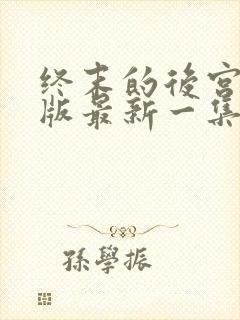 终末的後宫
版最新一集
孫學振